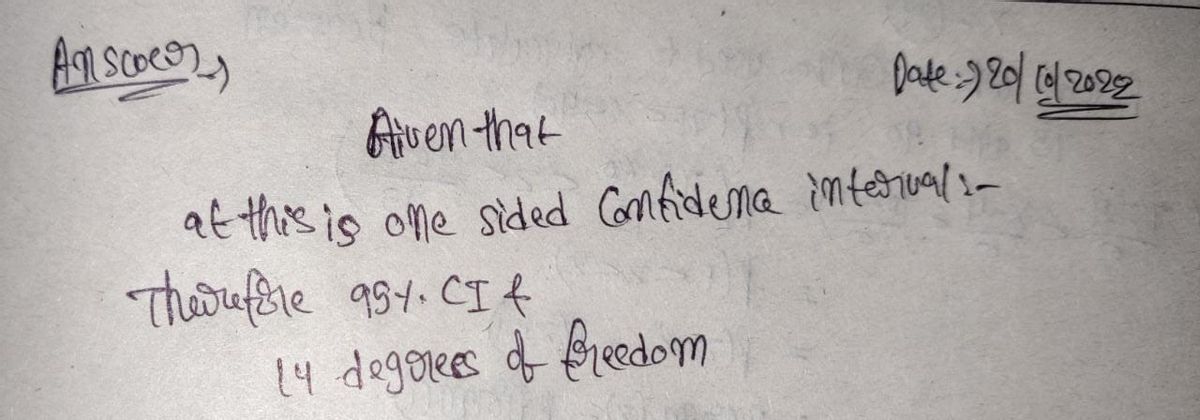 Answer,
Date:⇒ 20/10/2022
Given that
at this is one sided Confidence interval :-
Therefore 95%. CI &
14 degrees of freedom